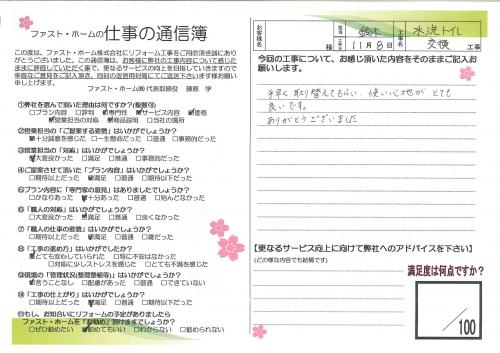 ファスト・ホームの仕事の通信簿
この度は、ファスト・ホーム株式会社にリフォーム工事をご用命頂き誠にあり
がとうございました。この通信簿は、お客様に弊社の工事内容について感じた
ままに評価していただく事で、更なるサービスの向上を目指していきますので
率直なご意見をご記入頂き、同封の返信用封筒にてご返送下さいます様お願い
申し上げます。
ファスト・ホーム㈱代表取締役 藤原 学
①弊社を選んで頂いた理由は何ですか？(複数可)
□プラン内容 □評判 □専門性 □サービス内容 □価格
□営業担当の対応 □商品説明 □当社の雰囲気
②営業担当の「ご提案する姿勢」はいかがでしょうか？
□十分誠意を感じた □一生懸命だった □普通 □事務的だった
③営業担当の「対応」はいかがでしょうか？
□大変良かった □満足 □普通 □事務的だった
④ご提案させて頂いた「プラン内容」はいかがでしょうか？
□期待以上だった □満足 □普通 □期待以下だった
⑤プラン内容に「専門家の意見」はありましたでしょうか？
□かなりあった □十分あった □普通 □殆んどなかった
⑥「職人の対応」はいかがでしょうか？
□大変良かった □満足 □普通 □良くなかった
⑦「職人の仕事の姿勢」はいかがでしょうか？
□期待以上だった □満足 □普通 □雑だった
⑧「工事の進め方」はいかがでしたか？
□とても安心していられた □特に不安はなかった
□対応に少しストレスを感じた □とても不満を感じた
⑨現場の「管理状況(整理整頓等)」はいかがでしょうか？
□言うことなし □配慮があった □普通 □できていない
⑩「工事の仕上がり」はいかがでしょうか？
□期待以上だった □満足 □普通 □期待以下だった
⑪もし、お知合いにリフォームの予定がありましたら
ファスト・ホームを「お勧め」頂けますでしょうか？
□ぜひ勧めたい □勧めてもいい □わからない □勧められない
お客様名 鈴木 様
工事日 11月8日
工事名 水洗トイレ
交換 工事
今回の工事について、お感じ頂いた内容をそのままご記入お
願いします。
手早く取り替えてもらい、使い心地がとても
良いです。
ありがとうございました
【更なるサービス向上に向けて弊社へのアドバイスを下さい】
(どの様な内容でも結構です)
満足度は何点ですか？
/100